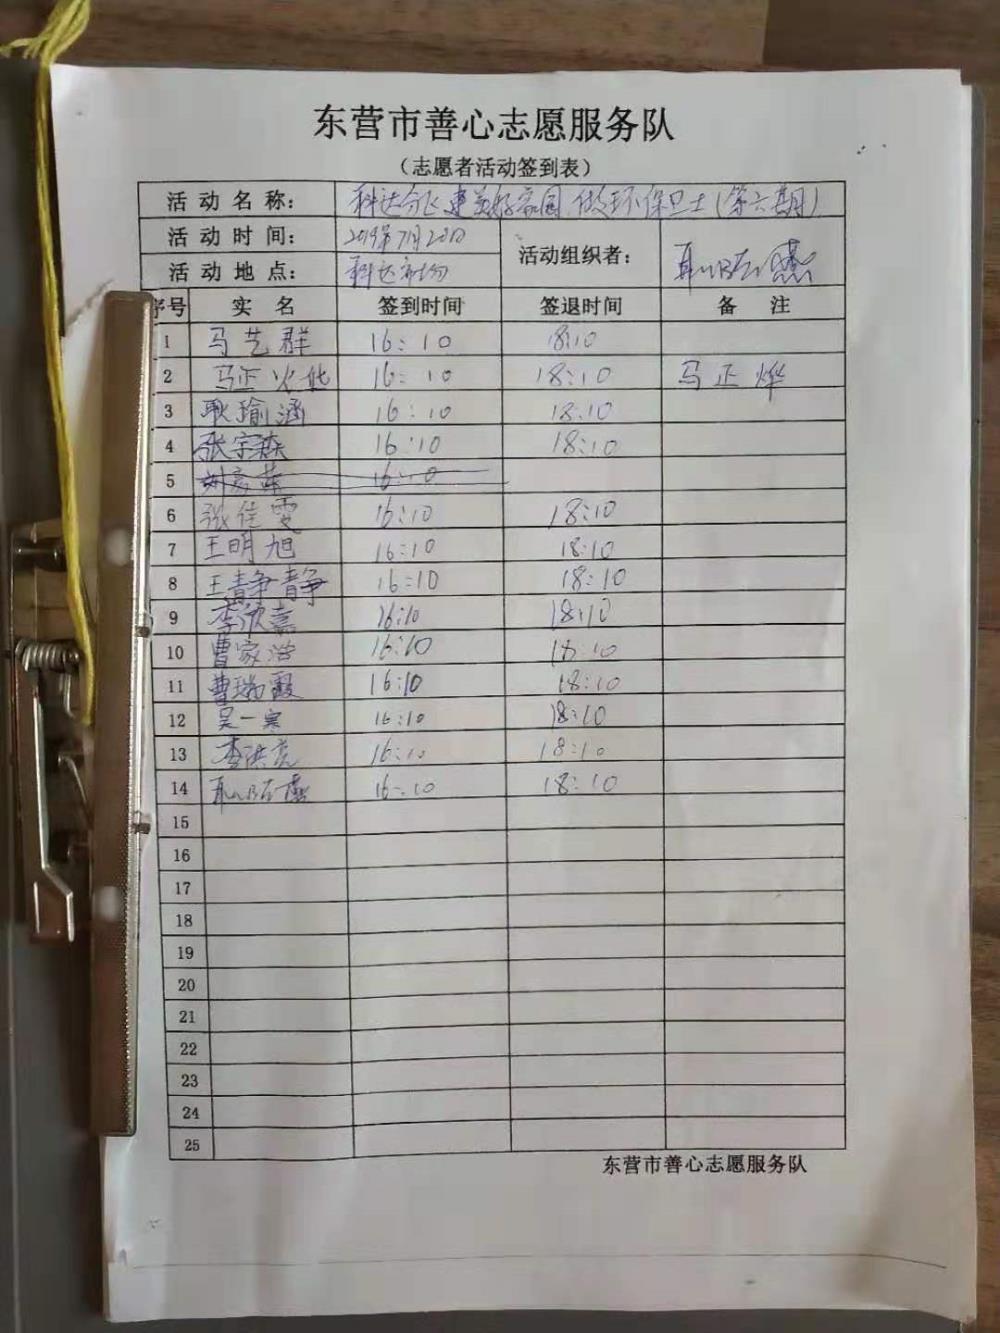 东营市善心志愿服务队
（志愿者活动签到表）
活动名称： 科达 建美好家园 做环保卫士（第六期）
活动时间： 2019年7月20日
活动地点： 科达 活动组织者：
序号 实名 签到时间 签退时间 备注
1 马艺群 16:10 18:10
2 马正火华 16:10 18:10 马正烨
3 耿瑜涵 16:10 18:10
4 张宗森 16:10 18:10
5 16:10
6 张佳雯 16:10 18:10
7 王明旭 16:10 18:10
8 王静静 16:10 18:10
9 李欣嘉 16:10 18:10
10 曹家浩 16:10 18:10
11 曹瑞霞 16:10 18:10
12 吴一寒 16:10 18:10
13 李洪亮 16:10 18:10
14 16:10 18:10
15
16
17
18
19
20
21
22
23
24
25
东营市善心志愿服务队